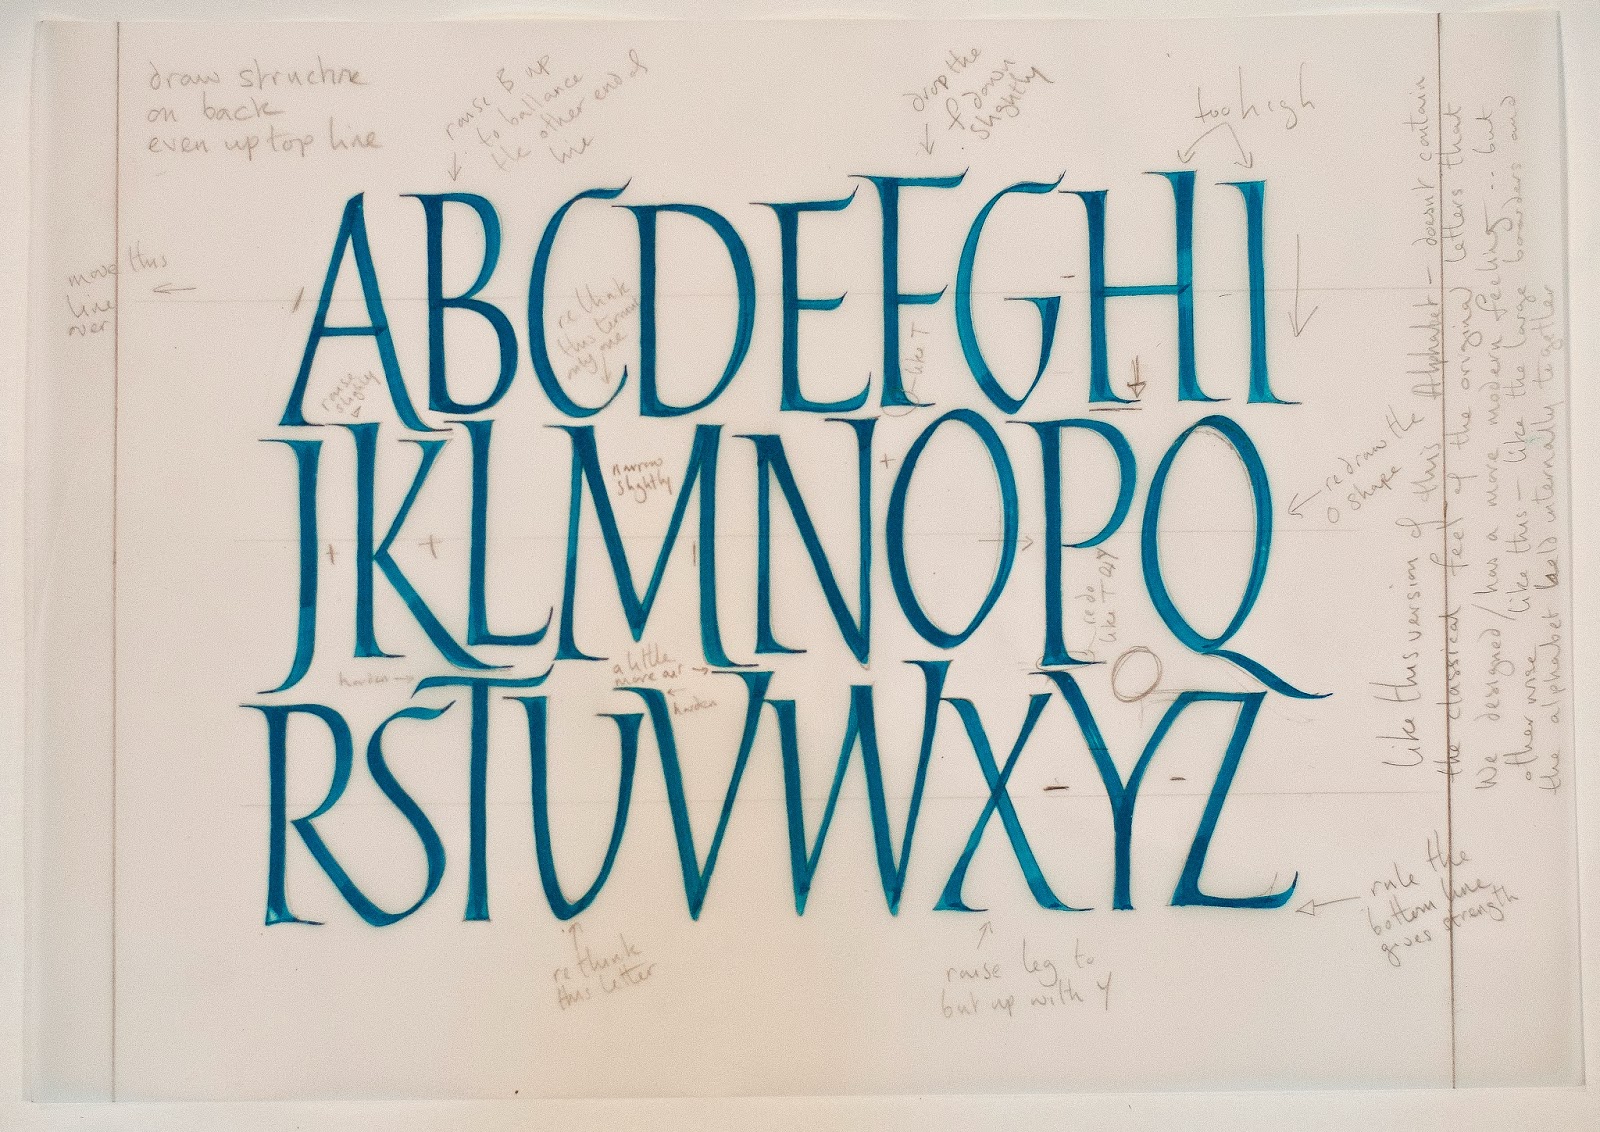 draw structure
on back
even up top line
raise B up
to ballance
the other end of
line
drop the
F down
slightly
too high
move this
line
over
ABCDEFGHI
re think
this terminal
only one
like T
raise
slightly
JKLMNOPQ
narrow
slightly
redraw the
O shape
redo
like T
a little
more air
harden
harden
RSTUVWXYZ
re think
this letter
raise leg to
but up with Y
rule the
bottom line
gives strength
like this version of this Alphabet - doesnt contain
the classical feel of the original letters that
We designed / has a more modern feeling... but
other wise like this - like the large boarders and
the alphabet held internally together